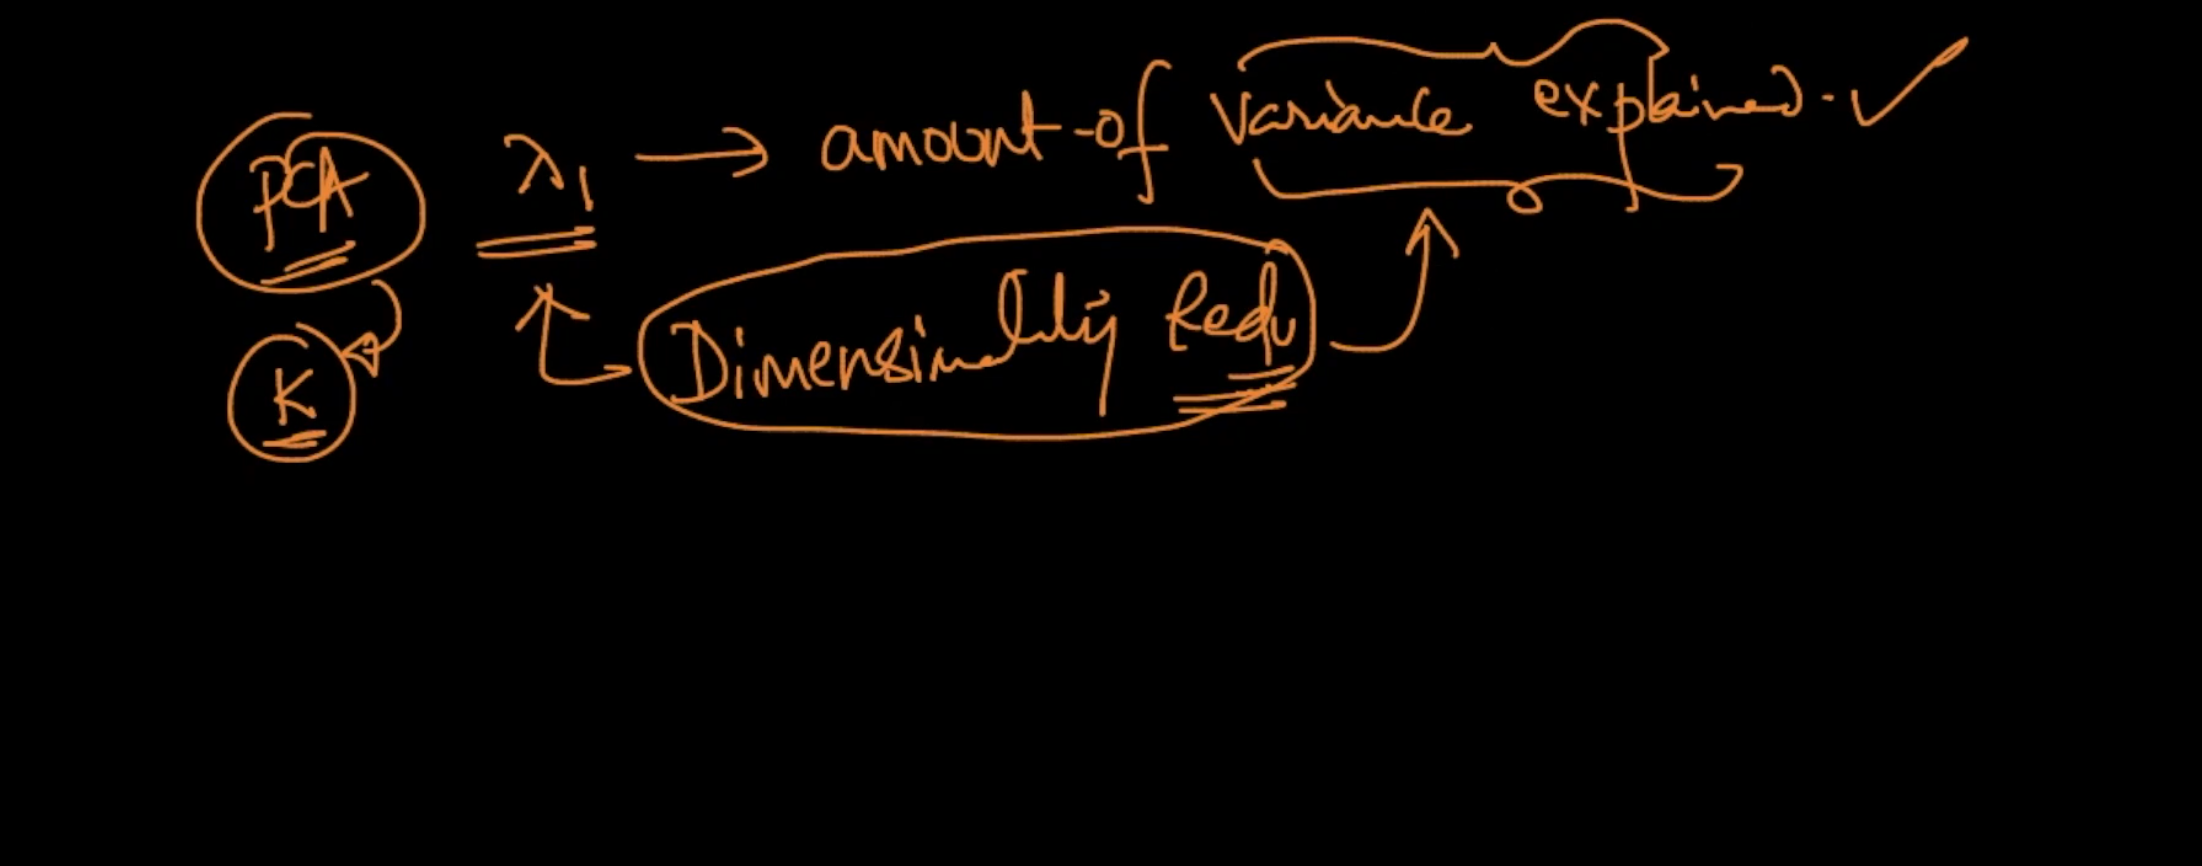 PCA λ1 → amount of variance explained. ✓
Dimensionality Redu
K